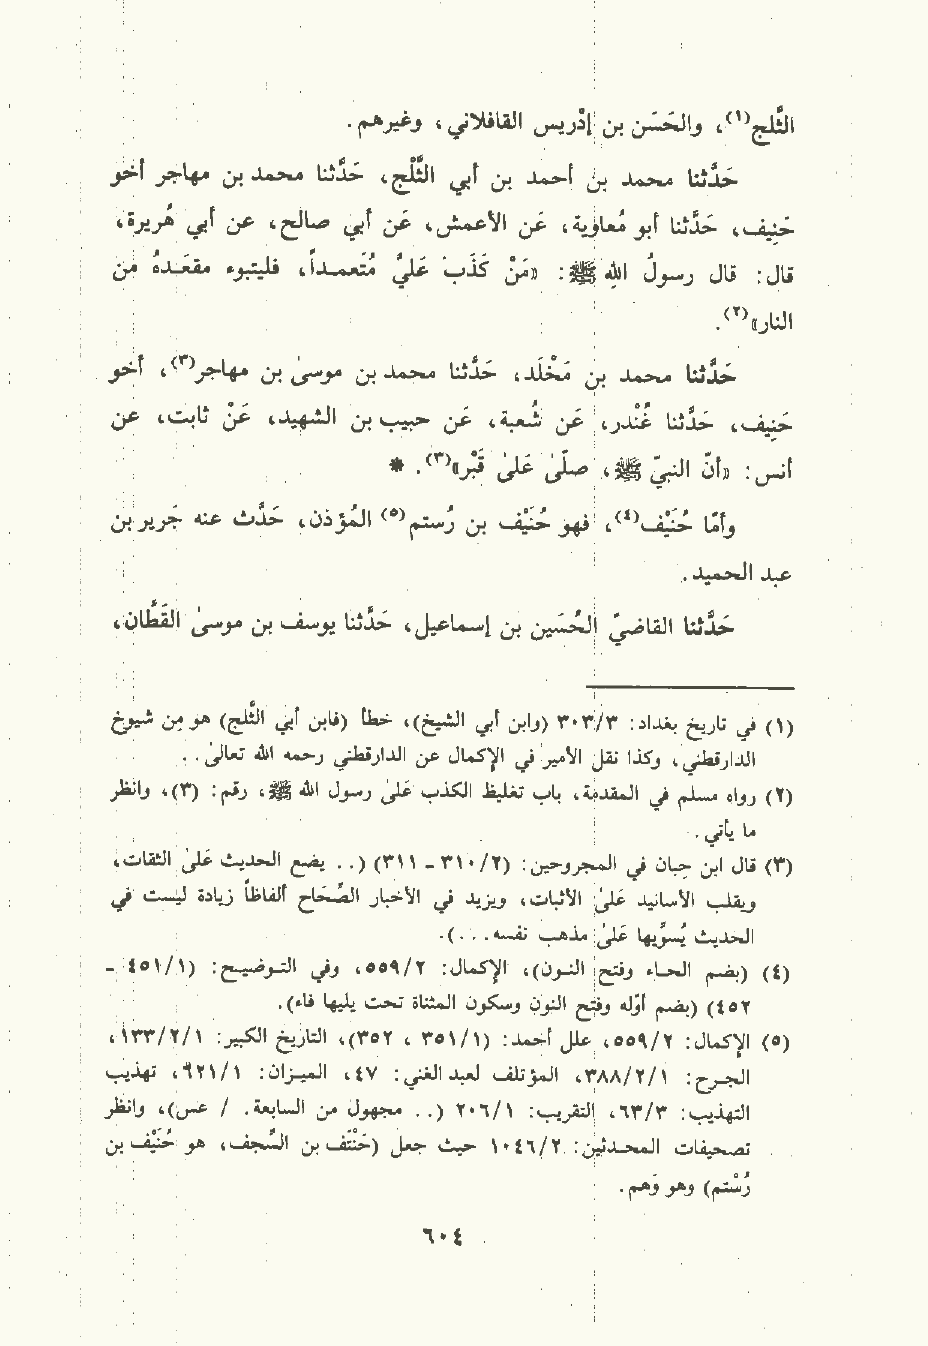 الثَّلج(١)، والحَسَن بن إدْريس القافلاني، وغيرهم.
حَدَّثنا محمد بن أحمد بن أبي الثَّلْج، حَدَّثنا محمد بن مهاجر أخو
حَنِيف، حَدَّثنا أبو مُعاوية، عَن الأعمش، عَن أبي صالح، عن أبي هُريرة،
قال: قال رسولُ اللهِ ﷺ: «مَنْ كَذَبَ عَليَّ مُتَعمـداً، فليتبوء مقعَـدهُ من
النار»(٢).
حَدَّثنا محمد بن مَخْلَد، حَدَّثنا محمد بن موسىٰ بن مهاجر(٣)، أخو
حَنِيف، حَدَّثنا غُنْدر، عَن شُعبة، عَن حبيب بن الشهيد، عَنْ ثابت، عن
أنس: «أنّ النبيّ ﷺ، صلّىٰ عَلىٰ قَبْر»(٣). *
وأمّا حُنَيْف(٤)، فهو حُنَيْف بن رُستم(٥) المُؤذن، حَدَّث عنه جَرير بن
عبد الحميد.
حَدَّثنا القاضيّ الحُسَين بن إسماعيل، حَدَّثنا يوسف بن موسىٰ القَطَّان،
(١) في تاريخ بغداد: ٣٠٣/٣ (وابن أبي الشيخ)، خطأ (فابن أبي الثَّلج) هو مِن شيوخ
الدارقطني، وكذا نقل الأمير في الإكمال عن الدارقطني رحمه الله تعالىٰ..
(٢) رواه مسلم في المقدمة، باب تغليظ الكذب عَلىٰ رسول الله ﷺ، رقم: (٣)، وانظر
ما يأتي.
(٣) قال ابن حِبان في المجروحين: (٣١٠/٢ - ٣١١) (.. يضع الحديث عَلىٰ الثقات،
ويقلب الأسانيد عَلىٰ الأثبات، ويزيد في الأخبار الصِّحَاح ألفاظاً زيادة ليست في
الحديث يُسوِّيها عَلىٰ مذهب نفسه...).
(٤) (بضم الحـاء وفتح النـون)، الإكمال: ٥٥٩/٢، وفي التـوضيـح: (٤٥١/١ -
٤٥٢) (بضم أوّله وفتح النون وسكون المثناة تحت يليها فاء).
(٥) الإكمال: ٥٥٩/٢، علل أحمد: (٣٥١/١ ، ٣٥٢)، التاريخ الكبير: ١٣٣/٢/١،
الجـرح: ٣٨٨/٢/١، المؤتلف لعبد الغني: ٤٧، الميـزان: ٦٢١/١، تهذيب
التهذيب: ٦٣/٣، التقريب: ٢٠٦/١ (.. مجهول من السابعة. / عس)، وانظر
تصحيفات المحـدثين: ١٠٤٦/٢ حيث جعل (حَنْتَف بن السِّجف، هو حُنَيْف بن
رُسْتم) وهو وَهم.
٦٠٤